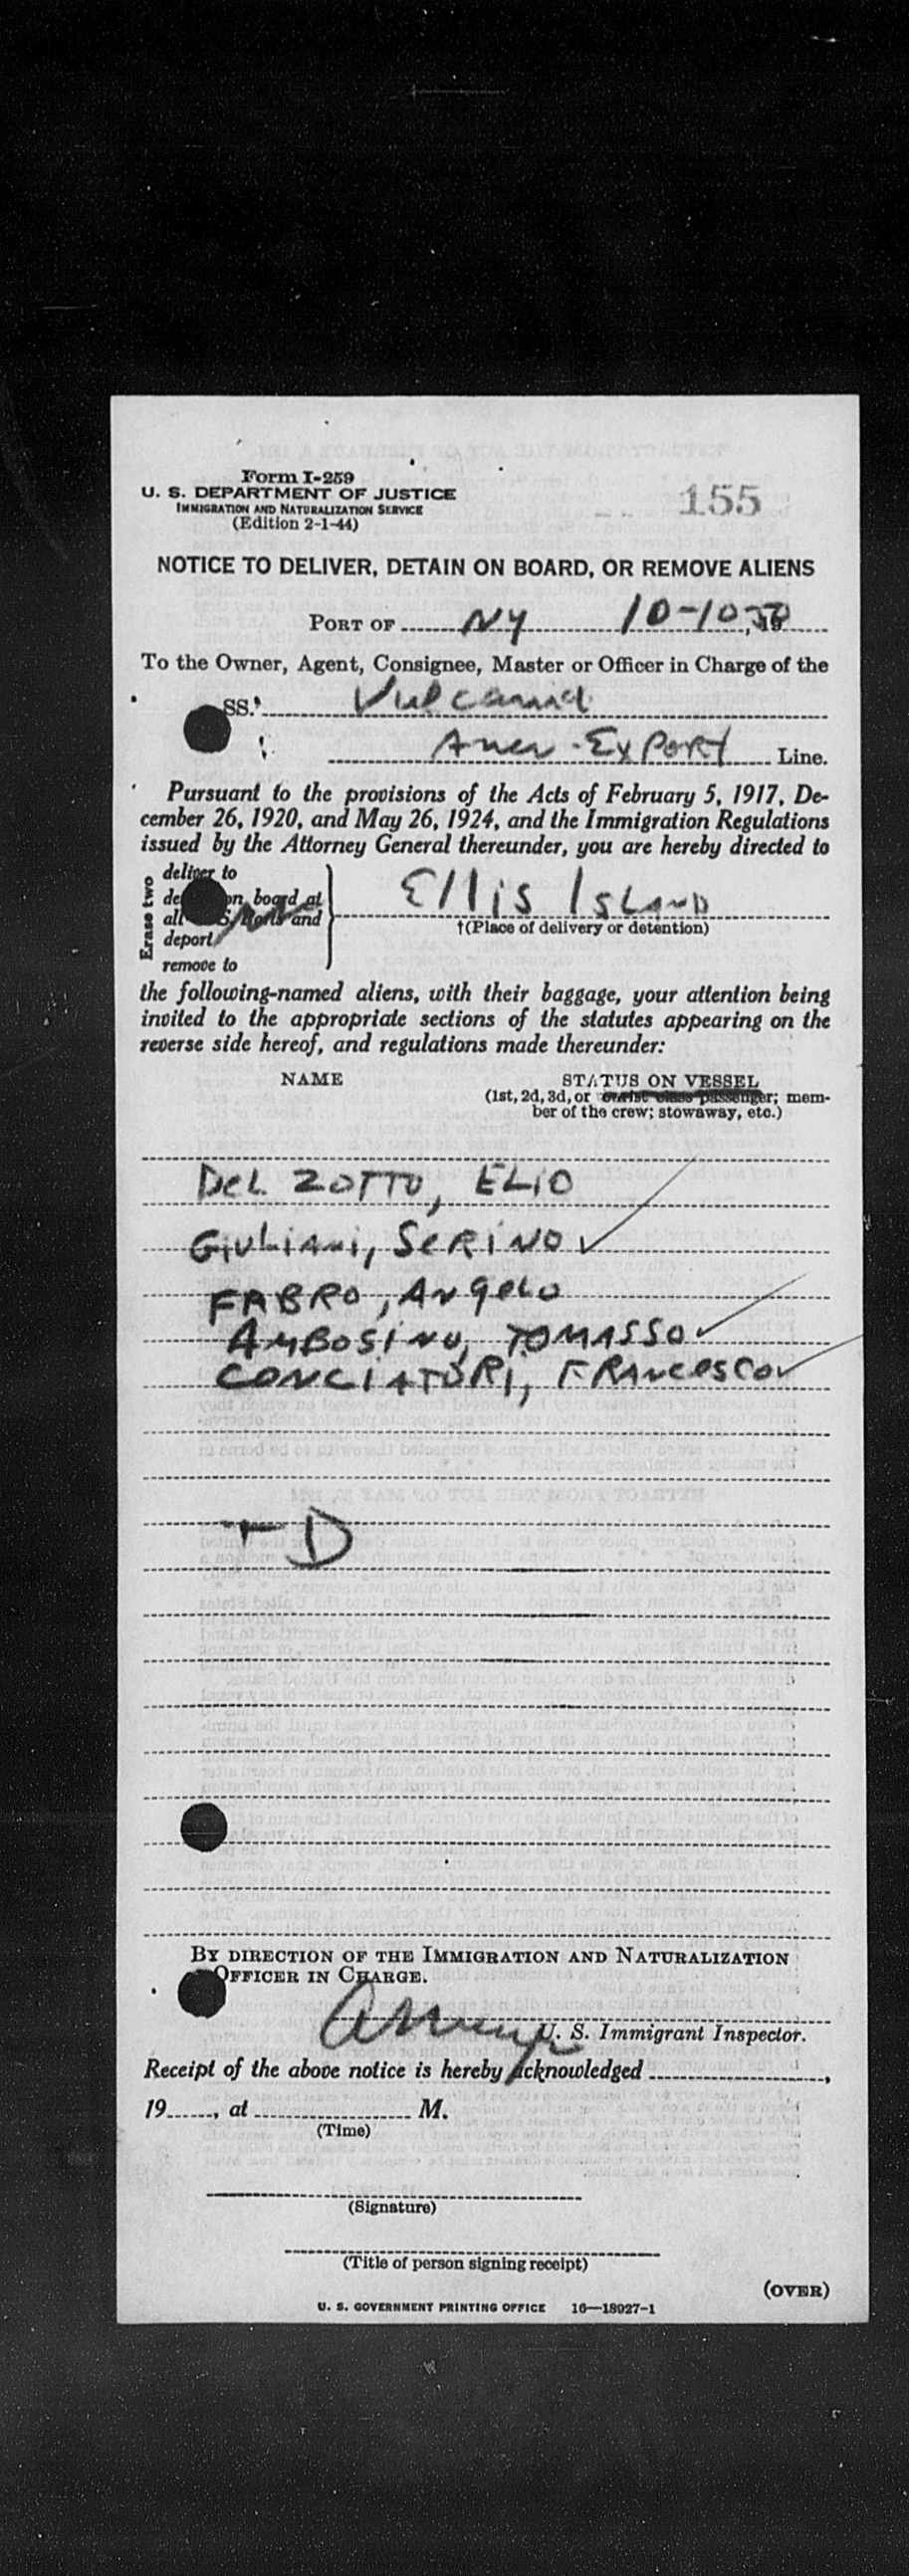 Form I-259
U. S. DEPARTMENT OF JUSTICE
IMMIGRATION AND NATURALIZATION SERVICE
(Edition 2-1-44)
155
NOTICE TO DELIVER, DETAIN ON BOARD, OR REMOVE ALIENS
PORT OF NY 10-10-50, 19
To the Owner, Agent, Consignee, Master or Officer in Charge of the
SS. Vulcania
Amer. Export Line.
Pursuant to the provisions of the Acts of February 5, 1917, De-
cember 26, 1920, and May 26, 1924, and the Immigration Regulations
issued by the Attorney General thereunder, you are hereby directed to
Erase two
deliver to
on board at
all and
deport
remove to
Ellis Island
†(Place of delivery or detention)
the following-named aliens, with their baggage, your attention being
invited to the appropriate sections of the statutes appearing on the
reverse side hereof, and regulations made thereunder:
NAME
STATUS ON VESSEL
(1st, 2d, 3d, or tourist class passenger; mem-
ber of the crew; stowaway, etc.)
Del ZOTTO, ELIO
GIULIANI, SERINO ✓
FABRO, ANGELO
AMBOSINO, TOMASSO ✓
CONCIATORI, FRANCESCO ✓
TD
BY DIRECTION OF THE IMMIGRATION AND NATURALIZATION
OFFICER IN CHARGE.
U. S. Immigrant Inspector.
Receipt of the above notice is hereby acknowledged ,
19 , at M.
(Time)
(Signature)
(Title of person signing receipt)
(OVER)
U. S. GOVERNMENT PRINTING OFFICE 16—18927-1